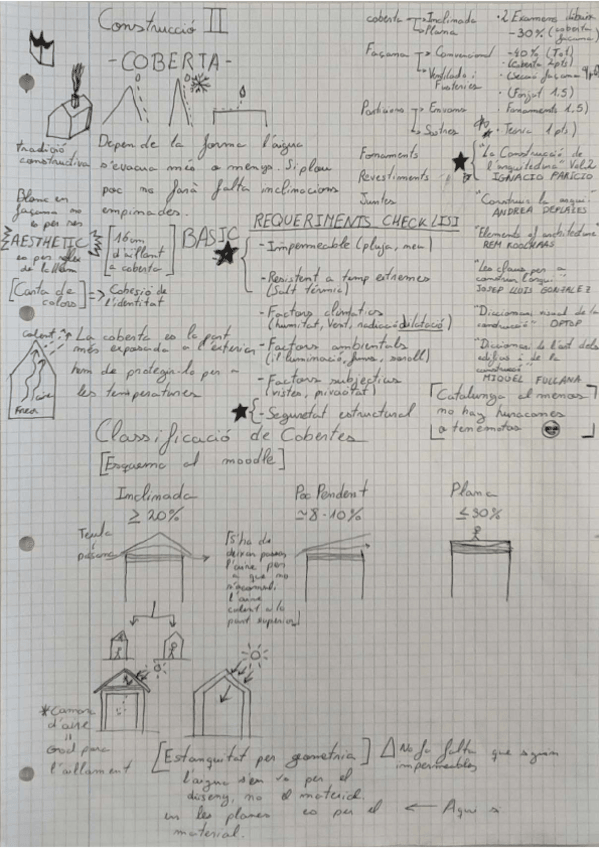 Construcció II
- COBERTA -
coberta → Inclinada
→ Plana
Façana → Convencional
→ Ventilada i
Particions → Envans
→ Sostres
Fonaments
Revestiments
Juntes
· 2 Examens
- 30% (coberta
façana)
- 40% (Tot)
· (Coberta 2pts)
· (Secció façana
· (Forjat 1.5)
· Fonaments 1.5)
· Teoria 1pts)
"La Construcció de
l'arquitectura" Vol.2
IGNACIO PARICIO
ANDREA DEPLAZES
"Elements of architecture"
REM KOOLHAAS
"Les claus per a
construir
JOSEP LLUIS GONZALEZ
"Diccionari visual de la
construcció" GPTOP
"Diccionari de l'art dels
oficis de la
construcció"
MIQUEL FULLANA
[Catalunya al menos
no hay huracanes
o terremotos]
tradició
constructiva
Depen de la forma l'aigua
s'evacua més o menys. Si plou
poc no farà falta inclinacions
empinades.
Blanc en
façana no
es per res
AESTHETIC
es per
de la llum
[16cm
d'aïllant
a coberta]
[Carta de
colors] => Cohesió de
l'identitat
BASIC
REQUERIMENTS CHECKLIST
- Impermeable (pluja, neu)
- Resistent a temp extremes
(Salt tèrmic)
- Factors climatics
(humitat, Vent, radiació dilatació)
- Factors ambientals
(il·luminació, fums, soroll)
- Factors subjectius
(vistes, privacitat)
- Seguretat estructural
calent
aire
Fred
La coberta es la part
més exposada a l'exterior
tem de protegir-lo per a
les temperatures
Classificació de Cobertes
[Esquema al moodle]
Inclinada
≥ 20%
Poc Pendent
≃ 8-10%
Plana
≤ 30%
Teula
[S'ha de
deixar passar
l'aire per
a que no
s'acumuli
l'aire
calent a la
part superior]
* Camara
d'aire
=
Good para
l'aillament
[Estanquitat per geometria]
l'aigua s'en va per el
disseny, no el material.
en les planes es per el
material.
△ No fa falta que siguin
impermeables
← Aqui si